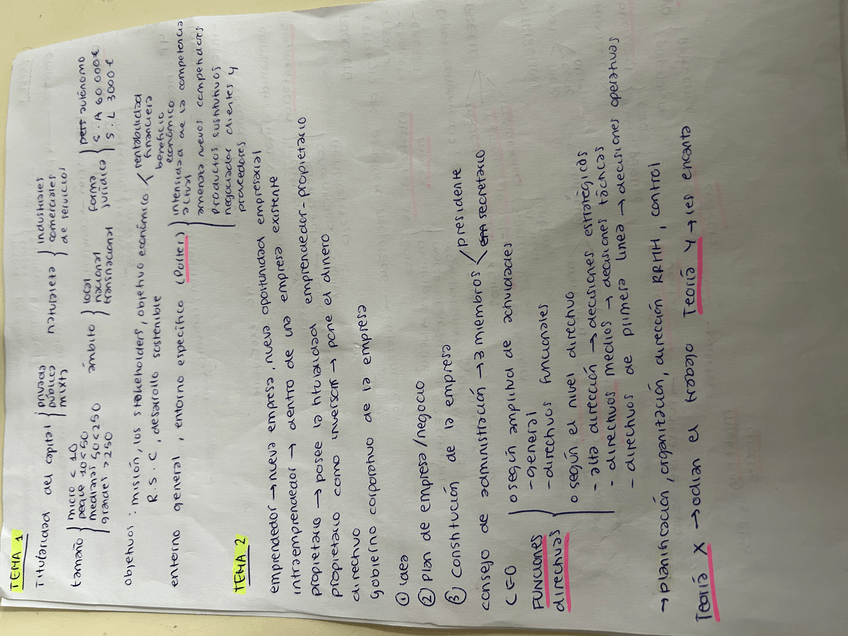 TEMA 1
Titularidad del capital { privada
pública
mixta
naturaleza { industriales
comerciales
de servicios
tamaño { micro < 10
peque 10<50
mediana 50<250
grandes >250
ámbito { local
nacional
transnacional
forma jurídica { autónomo
S.A 60.000€
S.L 3000€
objetivos: misión, los stakeholders, objetivo económico < rentabilidad
financiera
beneficio
económico
R.S.C, desarrollo sostenible
entorno general, entorno específico (Porter) { intensidad de la competencia
actual
amenaza nuevos competidores
Productos sustitutivos
negociador clientes y
proveedores
TEMA 2
emprendedor → nueva empresa, nueva oportunidad empresarial
intraemprendedor → dentro de una empresa existente
propietario → posee la titularidad emprendedor-propietario
propietario como inversor → pone el dinero
directivo
gobierno corporativo de la empresa
① idea
② Plan de empresa/negocio
③ constitución de la empresa
consejo de administración → miembros < presidente
secretario
CEO
FUNCIONES
directivas
{ o según amplitud de actividades
- general
- directivos funcionales
o según el nivel directivo
- alta dirección → decisiones estratégicas
- directivos medios → decisiones tácticas
- directivos de primera línea → decisiones operativas
→ planificación, organización, dirección RRHH, control
Teoría X → odian el trabajo Teoría Y → les encanta